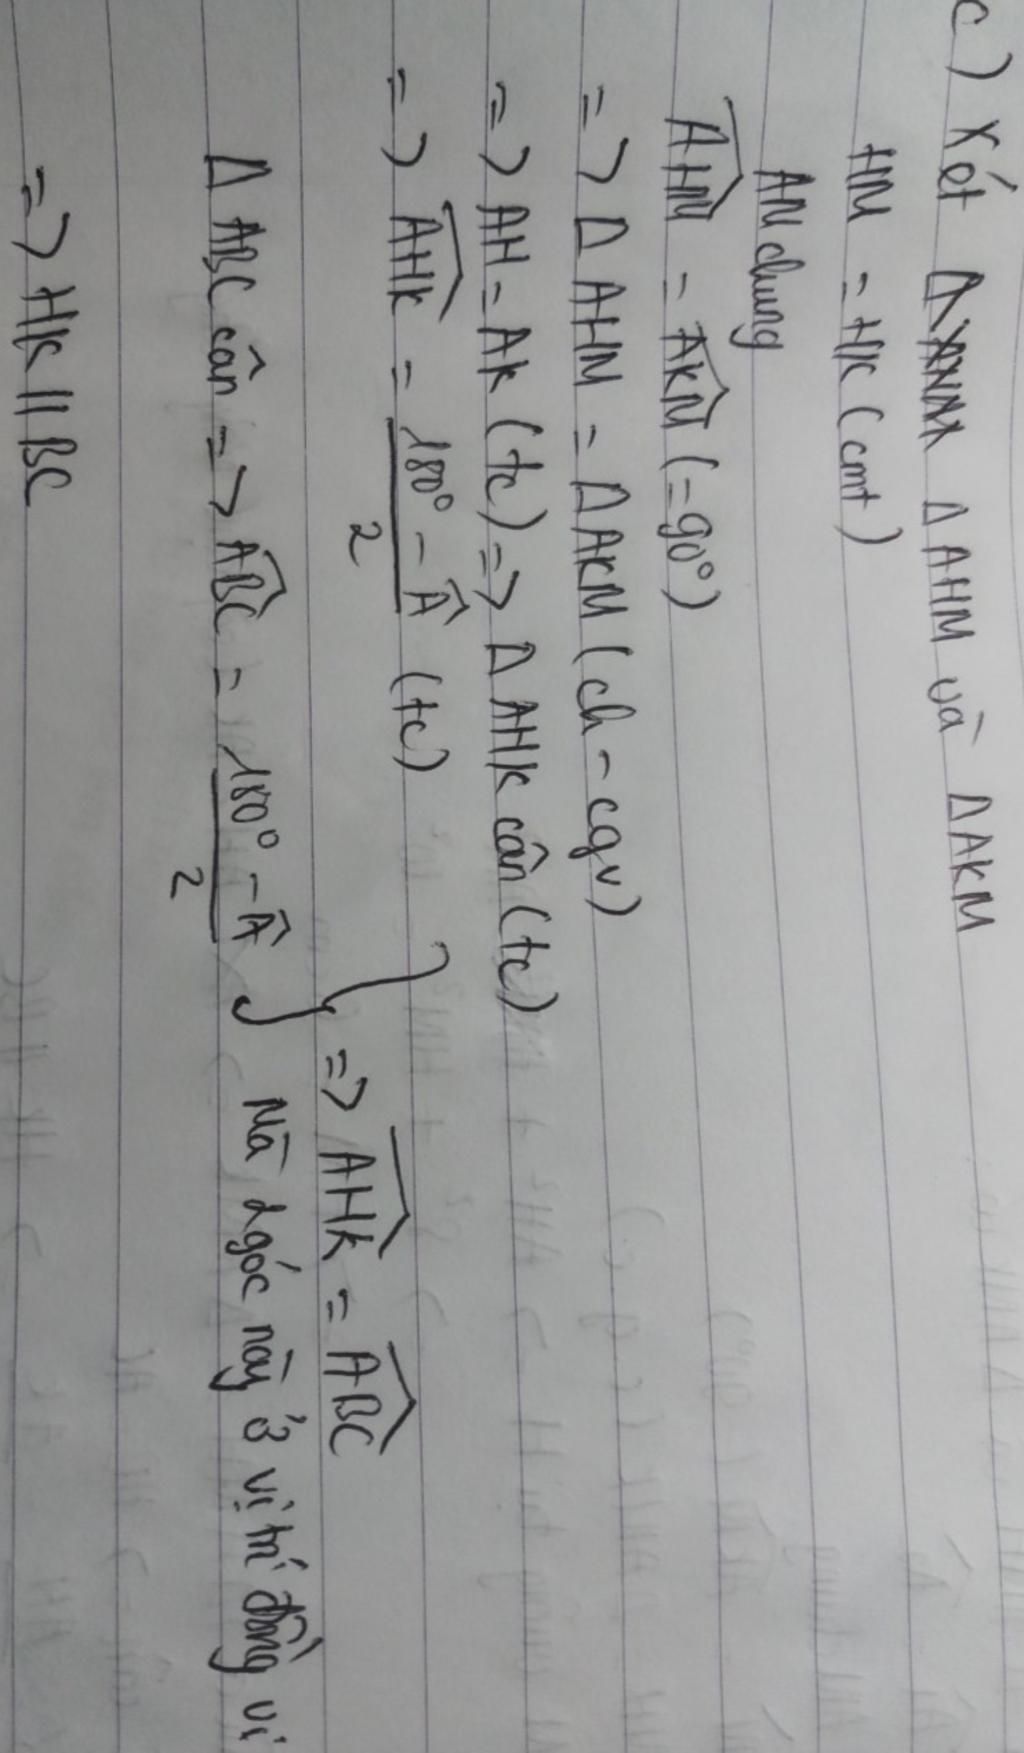 c) Xét ΔAHM và ΔAKM
HM = HK (cmt)
AM chung
$\widehat{AHM}$ = $\widehat{AKM}$ (=90°)
=> ΔAHM = ΔAKM (ch - cgv)
=> AH = AK (tc) => ΔAHK cân (tc)
=> $\widehat{AHK}$ = $\frac{180° - \widehat{A}}{2}$ (tc)
=> $\widehat{AHK}$ = $\widehat{ABC}$
ΔABC cân => $\widehat{ABC}$ = $\frac{180° - \widehat{A}}{2}$
Mà 2 góc này ở vị trí đồng vị
=> HK // BC